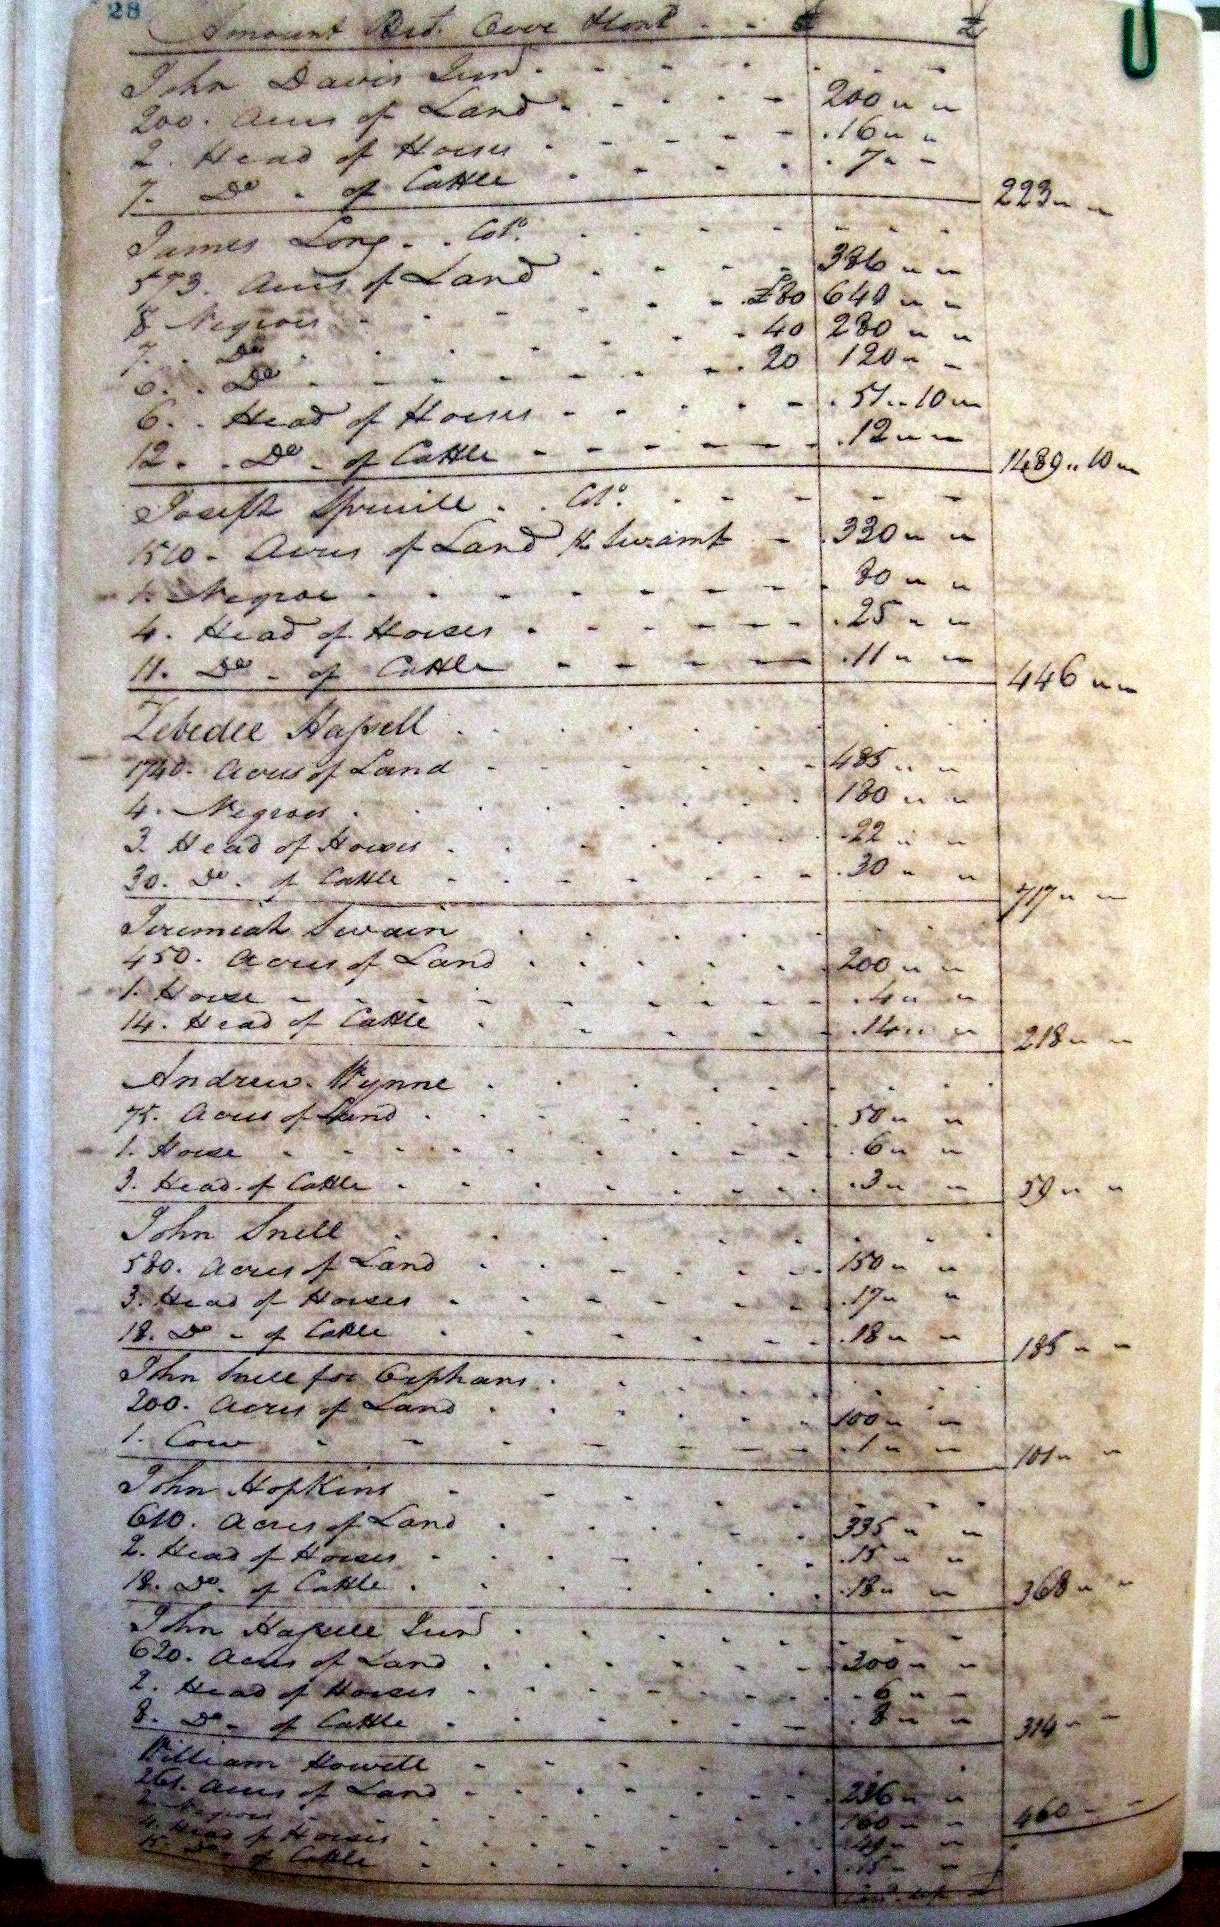 28
Amount Brt. Over £ £
John Davis Junr.
200. Acres of Land 200 " "
2. Head of Horses 16 " "
7. Do. of Cattle 7 " "
223 " "
James Long Col.
573. Acres of Land 386 " "
8 Negroes £80 640 " "
7. Do 40 280 " "
6. Do 20 120 " "
6. Head of Horses 51 .. 10 "
12. Do. of Cattle 12 " "
1489 .. 10 "
Joseph Spruill Col.
1510. Acres of Land & Swamp 330 " "
1. Negroe 80 " "
4. Head of Horses 25 " "
11. Do. of Cattle 11 " "
446 " "
Zebedee Hassell
1740. Acres of Land 485 " "
4. Negroes 180 " "
3. Head of Horses 22 " "
30. Do. of Cattle 30 " "
717 " "
Jeremiah Swain
450. Acres of Land 200 " "
1. Horse 4 " "
14. Head of Cattle 14 " "
218 " "
Andrew Wynne
75. Acres of Land 50 " "
1. Horse 6 " "
3. Head of Cattle 3 " "
59 " "
John Snell
580. Acres of Land 150 " "
3. Head of Horses 17 " "
18. Do. of Cattle 18 " "
185 " "
John Snell for Orphans
200. Acres of Land 100 " "
1. Cow 1 " "
101 " "
John Hopkins
610. Acres of Land 335 " "
2. Head of Horses 15 " "
18. Do. of Cattle 18 " "
368 " "
John Hassell Junr
620. Acres of Land 300 " "
2. Head of Horses 6 " "
8. Do. of Cattle 8 " "
314 " "
William Howett
261. Acres of Land 236 " "
2. Negroes 160 " "
4. Head of Horses 49 " "
15. Do. of Cattle 15 " "
460 " "